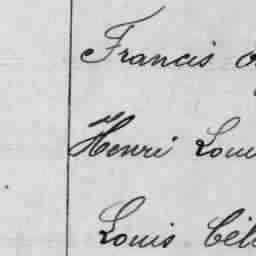 Francis
Henri Loui
Louis Cél